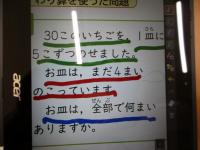 わり算を使った問題
30このいちごを、1皿に
5こずつのせました。
お皿は、まだ4まい
のこっています。
お皿は、全部で何まい
ありますか。
acer